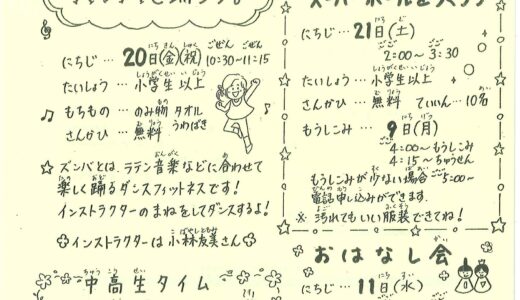 にちじ… 20日(金)(祝) 10:30~11:15
たいしょう… 小学生以上
もちもの… のみ物 タオル うわばき
さんかひ… 無料
☆ズンバとは、ラテン音楽などに合わせて
楽しく踊るダンスフィットネスです!
インストラクターのまねをしてダンスするよ!
インストラクターは小林友美さん
中高生タイム
にちじ… 21日(土)
2:00~3:30
たいしょう… 小学生以上
さんかひ… 無料 ていいん… 10名
もうしこみ… 9日(月)
4:00~もうしこみ
4:15~ちゅうせん
もうしこみが少ない場合 5:00~
電話申し込みができます。
※汚れてもいい服装できてね!
おはなし会
にちじ… 11日(水)